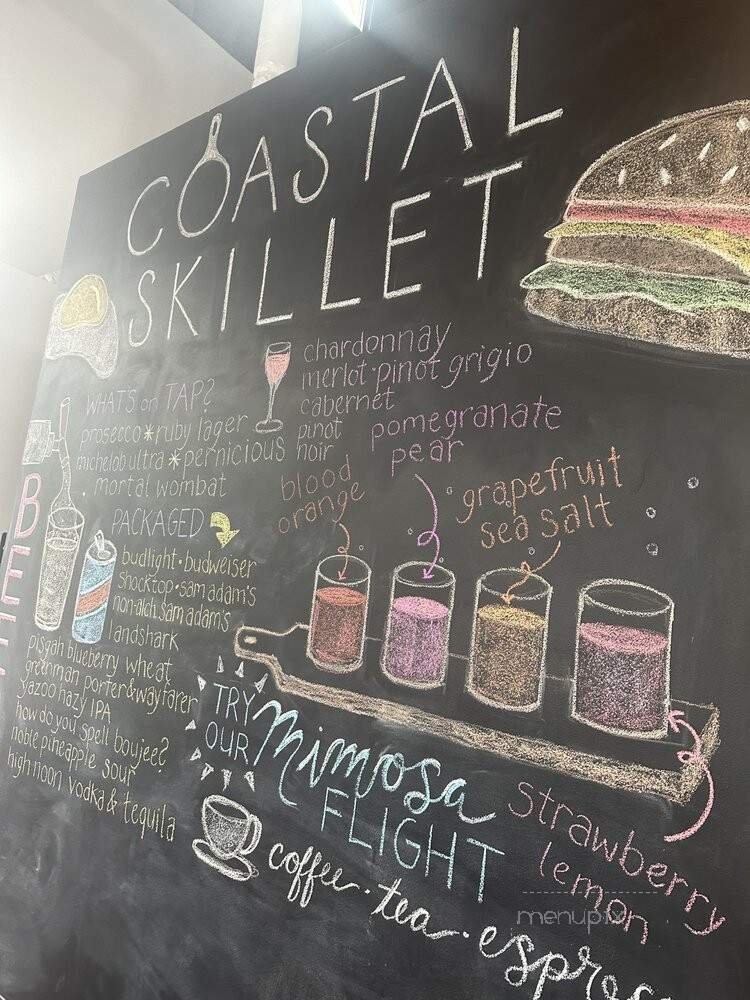 COASTAL
SKILLET
chardonnay
merlot·pinot grigio
cabernet
pinot
noir
WHAT'S on TAP?
prosecco*ruby lager
michelob ultra*pernicious
mortal wombat
PACKAGED
budlight·budweiser
shocktop·sam adam's
non-alch. sam adam's
landshark
pisgah blueberry wheat
greenman porter & wayfarer
yazoo hazy IPA
how do you spell boujee?
noble pineapple sour
high noon vodka & tequila
blood
orange
pomegranate
pear
grapefruit
sea salt
strawberry
lemon
TRY
OUR
mimosa
FLIGHT
coffee·tea·espres
menupix